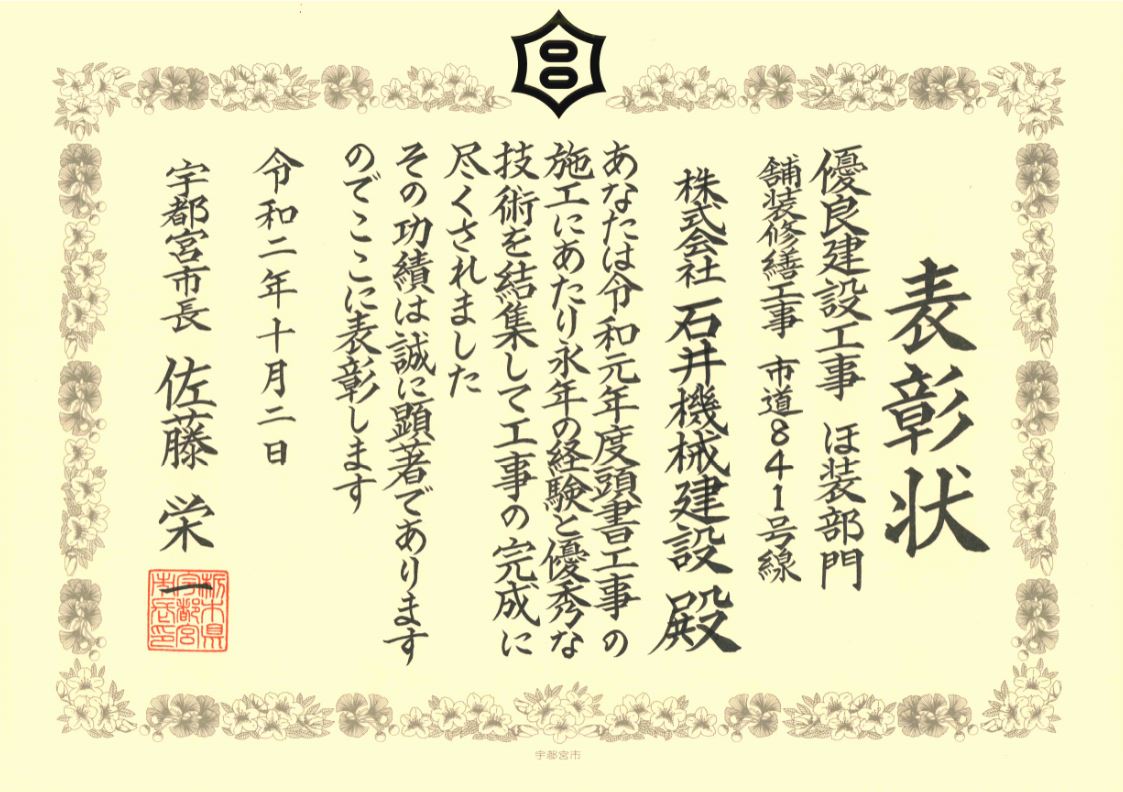 表彰状
優良建設工事 ほ装部門
舗装修繕工事 市道841号線
株式会社 石井機械建設 殿
あなたは令和元年度頭書工事の
施工にあたり永年の経験と優秀な
技術を結集して工事の完成に
尽くされました
その功績は誠に顕著であります
のでここに表彰します
令和二年十月二日
宇都宮市長 佐藤 栄一
栃木県
宇都宮
市長印
宇都宮市